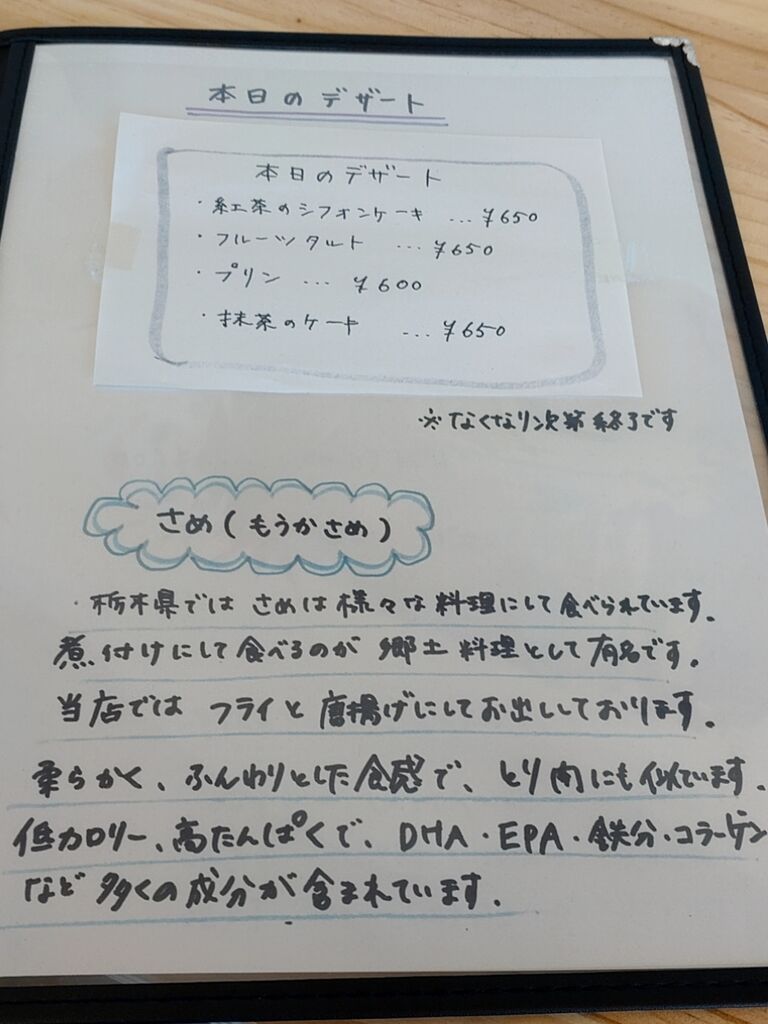 本日のデザート
本日のデザート
・紅茶のシフォンケーキ ...¥650
・フルーツタルト ...¥650
・プリン ... ¥600
・抹茶のケーキ ...¥650
※なくなり次第終了です
さめ(もうかさめ)
・栃木県では さめは様々な料理にして食べられています。
煮付けにして食べるのが 郷土料理として有名です。
当店では フライと唐揚げにしてお出ししております。
柔らかく、ふんわりとした食感で、とり肉にも似ています。
低カロリー、高たんぱくで、DHA・EPA・鉄分・コラーゲン
など多くの成分が含まれています。